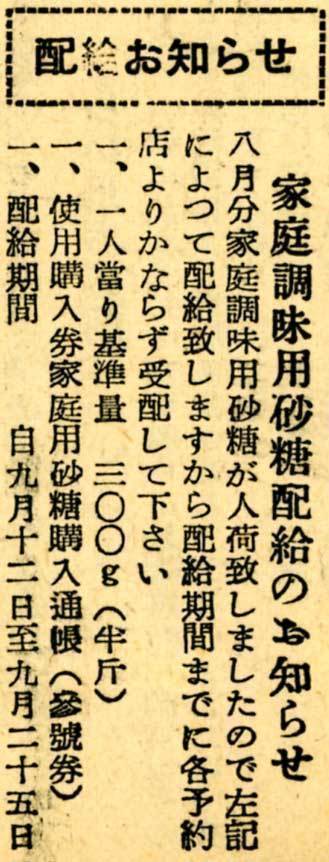 配給お知らせ
家庭調味用砂糖配給のお知らせ
八月分家庭調味用砂糖が入荷致しましたので左記
によつて配給致しますから配給期間までに各予約
店よりかならず受配して下さい
一、一人當り基準量　三〇〇g（半斤）
一、使用購入券家庭用砂糖購入通帳（參號券）
一、配給期間　自九月十二日至九月二十五日